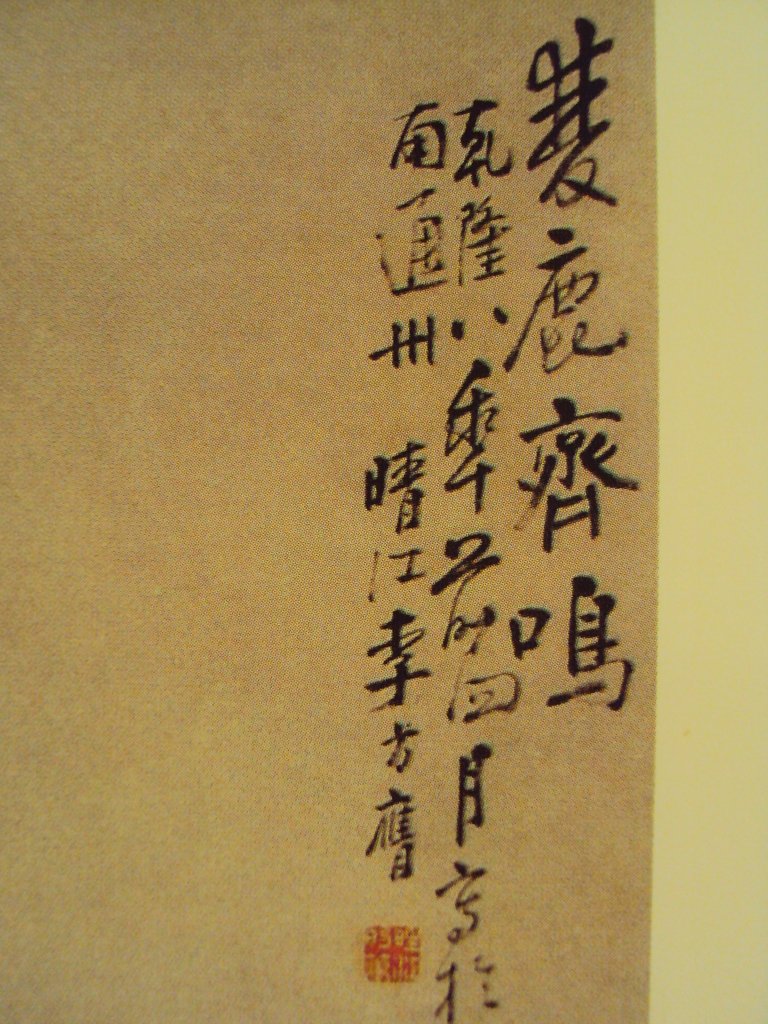 雙鹿齊鳴
乾隆八年前四月寫於
南通州 晴江李方膺